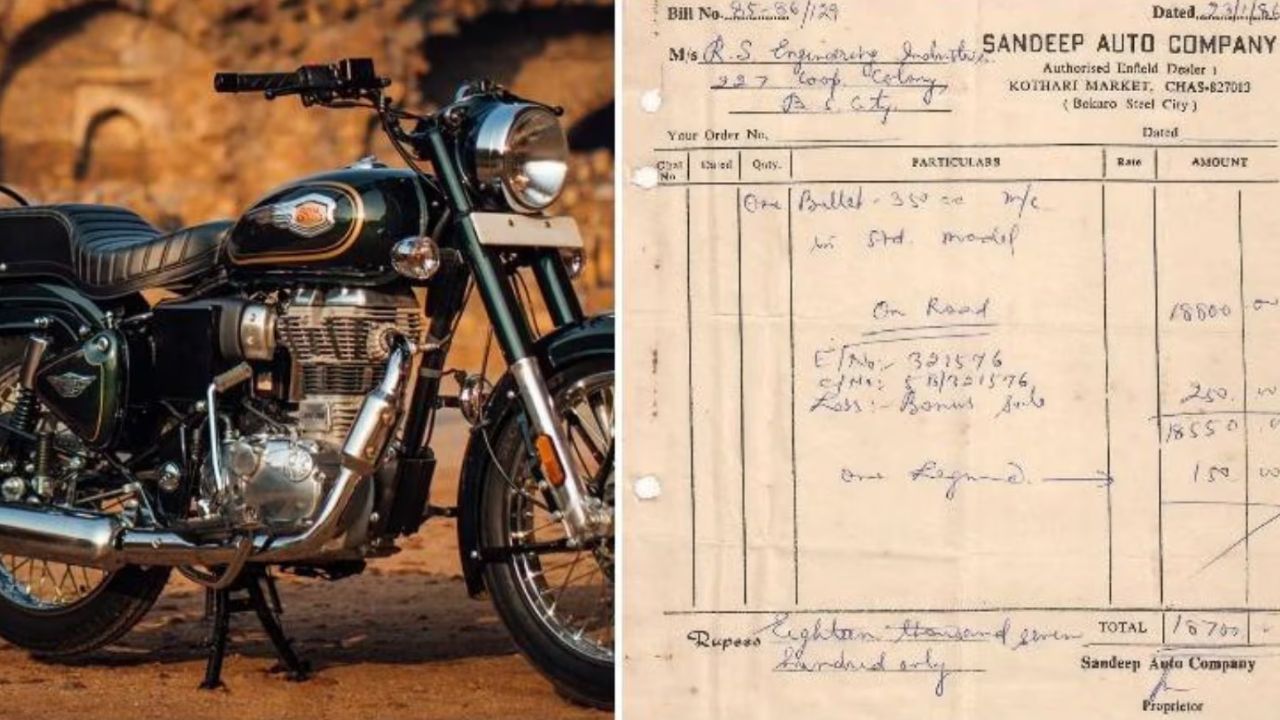 Bill No. 85-86/129
Dated 23/1/86
M/s R.S. Engineering Industries
227 Coop. Colony
B.S. City
SANDEEP AUTO COMPANY
Authorised Enfield Dealer :
KOTHARI MARKET, CHAS-827013
( Bokaro Steel City )
Your Order No.
Dated
Chal No Dated Qnty. PARTICULARS Rate AMOUNT
One Bullet - 350 cc m/c
in Std. model
On Road 18800 00
E/No:- 321576
C/No: 5B/321576
Less :- Bonus 250 00
18550
one Legguard 150 00
Rupees Eighteen thousand seven
hundred only
TOTAL 18700
Sandeep Auto Company
Proprietor